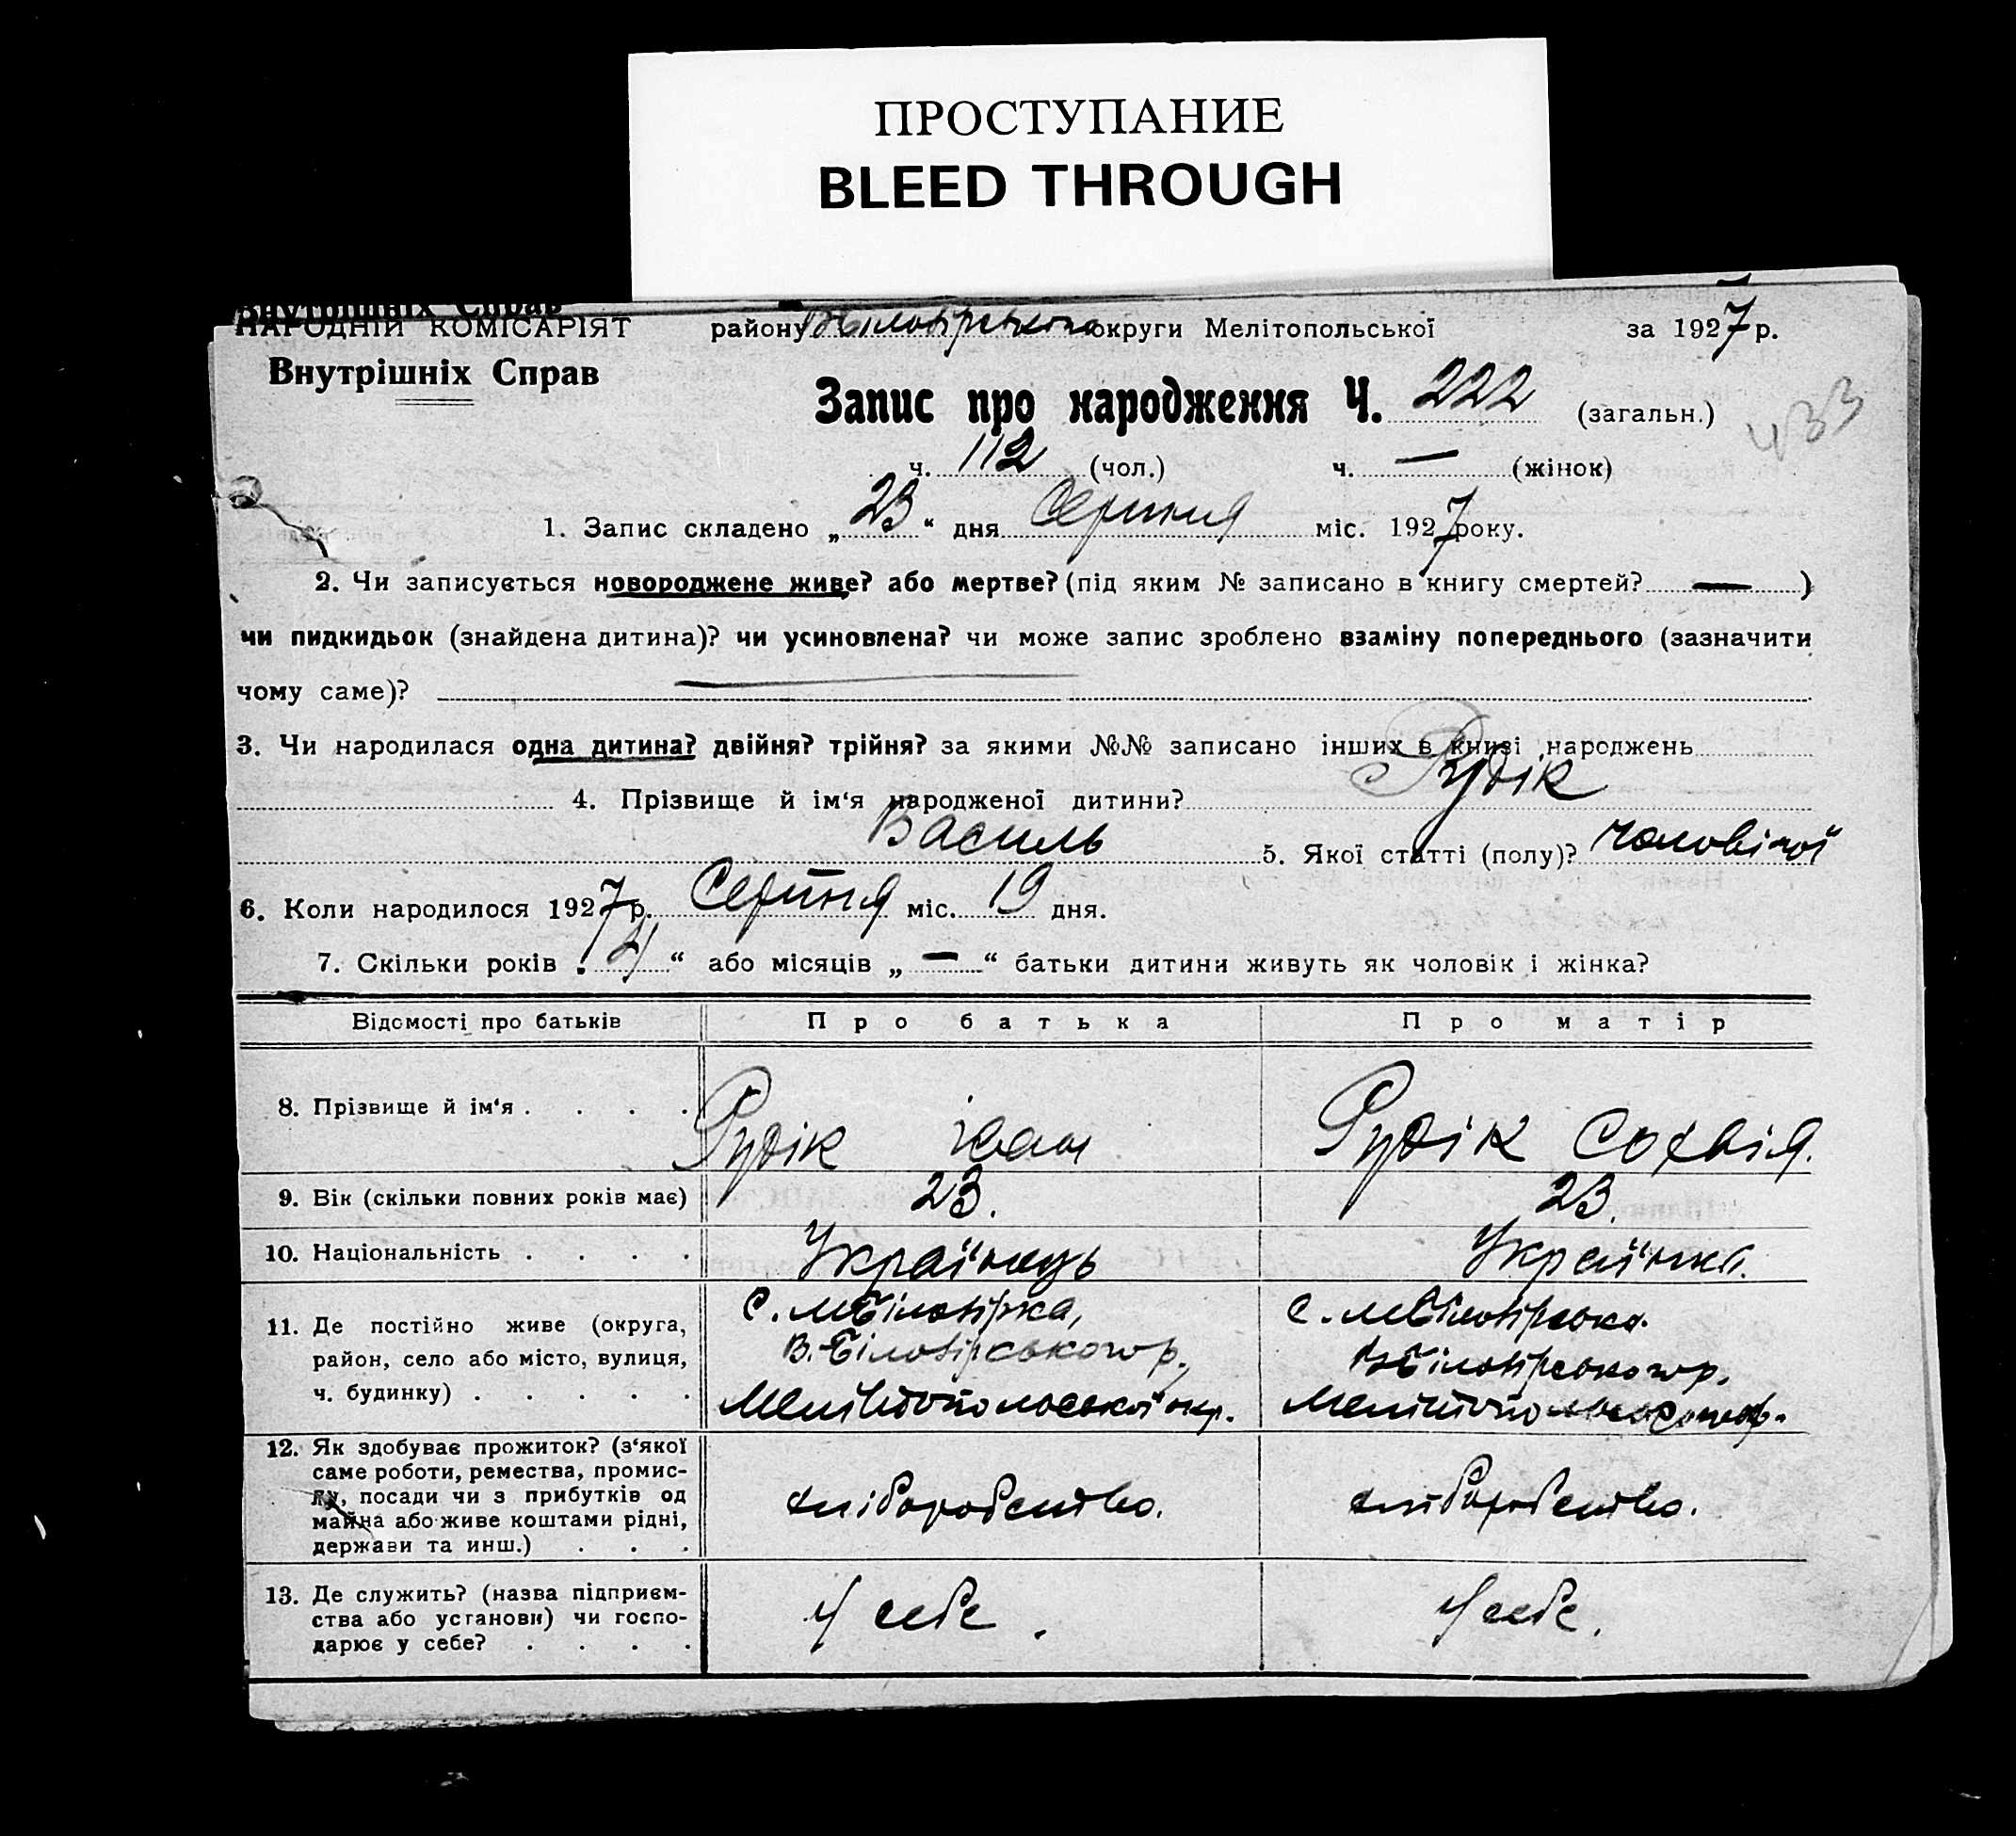 ПРОСТУПАНИЕ
BLEED THROUGH
Внутрішніх Справ
НАРОДНІЙ КОМІСАРІЯТ району округи Мелітопольської за 1927 р.
Внутрішніх Справ
Запис про народження Ч. 222 (загальн.)
433
ч. 112 (чол.) ч. — (жінок)
1. Запис складено „23“ дня Серпня міс. 1927 року.
2. Чи записується новороджене живе? або мертве? (під яким № записано в книгу смертей? — )
чи пидкидьок (знайдена дитина)? чи усиновлена? чи може запис зроблено взаміну попереднього (зазначити
чому саме)?
3. Чи народилася одна дитина? двійня? трійня? за якими №№ записано інших в книзі народжень
4. Прізвище й ім‘я народженої дитини? Рудік
Василь 5. Якої статті (полу)? чоловічої
6. Коли народилося 1927 р. Серпня міс. 19 дня.
7. Скільки років „4“ або місяців „ — “ батьки дитини живуть як чоловік і жінка?
Відомості про батьків Про батька Про матір
8. Прізвище й ім‘я . . . . Рудік Іван Рудік Софвія.
9. Вік (скільки повних років має) 23. 23.
10. Національність . . . . Українець Українка.
11. Де постійно живе (округа, район, село або місто, вулиця, ч. будинку) . . . . .
С. М Білозірка,
В.-Білозірського р.
Мелітопольської окр.
С. М Білозірська.
В Білозірського р.
12. Як здобуває прожиток? (з‘якої
саме роботи, ремества, промис-
лу, посади чи з прибутків од
майна або живе коштами рідні,
держави та инш.) . . .
хліборобство. хліборобство.
13. Де служить? (назва підприєм-
ства або установи) чи госпо-
дарює у себе? . . . .
У себе. У себе.